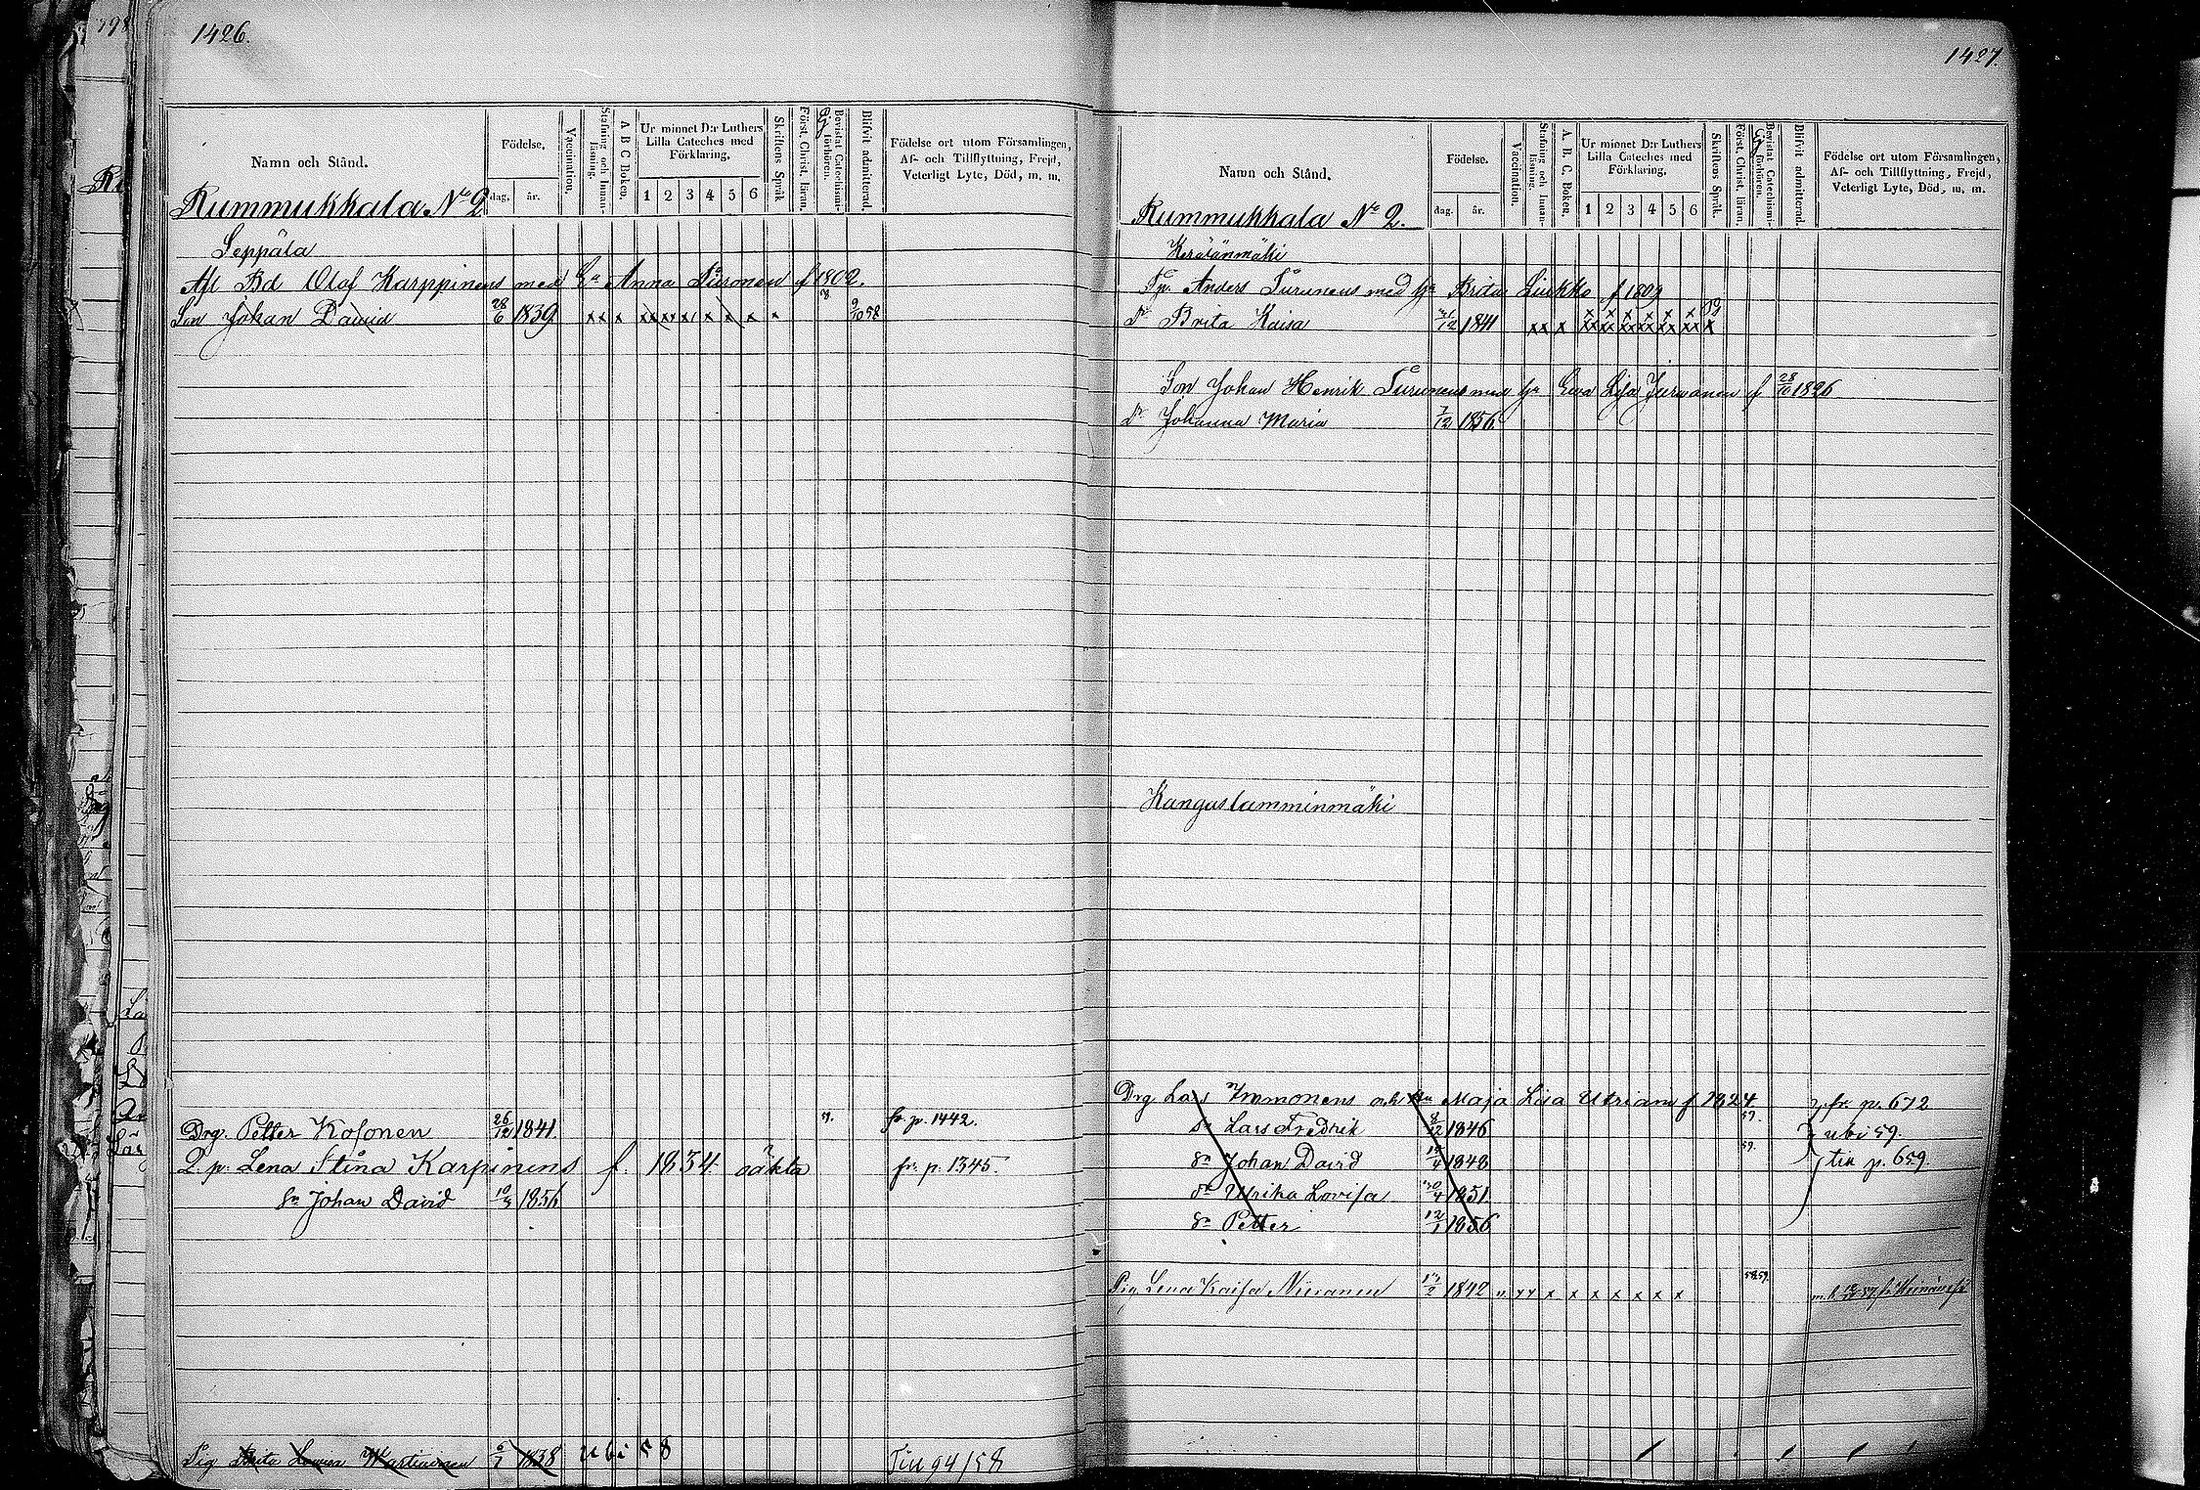 1426.
Namn och Stånd.
Födelse.
dag. år.
Vaccination.
Stafning och Innanläsning.
A B C Boken.
Ur minnet D:r Luthers Lilla Cateches med Förklaring.
1 2 3 4 5 6
Skriftens Språk
Först. Christ. läran.
Bevistat Catechismiförhören.
Blifvit admitterad.
Födelse ort utom Församlingen,
Af- och Tillflyttning, Frejd,
Veterligt Lyte, Död, m. m.
Rummukkala No 2
Seppälä
Afl Bd Olof Karppinens med Ea Anna f 1802.
Son Johan David 28/6 1839 xx x xx xx x x x x x 9/10 58
Drg. Petter Kosonen 26/12 1841. fr. p. 1442.
Q. p. Lena Stina Karpinens f. 1834 oäkta fr. p. 1345.
sn Johan David 10/3 1856
Pig Brita Lovisa Martinonen 6/7 1838 ubi 58 Tiu 94/58
1427.
Namn och Stånd.
Födelse.
dag. år.
Vaccination.
Stafning och Innanläsning.
A. B. C. Boken.
Ur minnet D:r Luthers Lilla Cateches med Förklaring.
1 2 3 4 5 6
Skriftens Språk.
Först. Christ. läran.
Bevistat Catechismiförhören.
Blifvit admitterad.
Födelse ort utom Församlingen,
Af- och Tillflyttning, Frejd,
Veterligt Lyte, Död, m. m.
Rummukkala No 2.
Kerälänmäki
Anders Turunens med hu Brita Liukko f 1809
Dr Brita Kaisa 1841 xx x xx xx xx xx xx xx x
Son Johan Henrik Turunens med hu Eva Lisa f 28/10 1826
Dr Johanna Maria 7/12 1856
Kanguslamminmäki
Drg Lars Immonens och hu Maja Lisa Utriain f 1824 fr p. 672
sn Lars Fredrik 8/12 1846 57. ubi 59.
sn Johan David 19/4 1848 59. tiu p. 659.
dr Ulrika Lovisa 30/4 1851
sn Petter 12/1 1856
Pig Lena Kaisa Niiranen 13/2 1842 xx x x x x x x x 58 59.